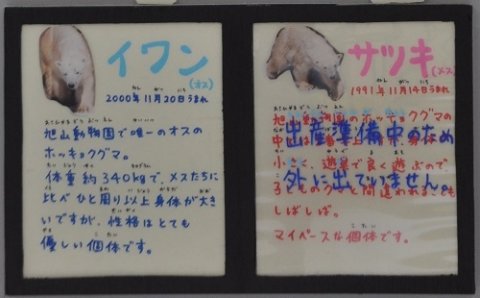 イワン
(オス)
2000年11月20日うまれ
旭山動物園で唯一のオスの
ホッキョクグマ。
体重約340kgで、メスたちに
比べひと周り以上身体が大き
いですが、性格はとても
優しい個体です。
サツキ(メス)
1991年11月14日うまれ
旭山動物園のホッキョクグマの
出産準備中のため
小さく、遊具で良く遊ぶので
外に出ていません。
しばしば。
マイペースな個体です。